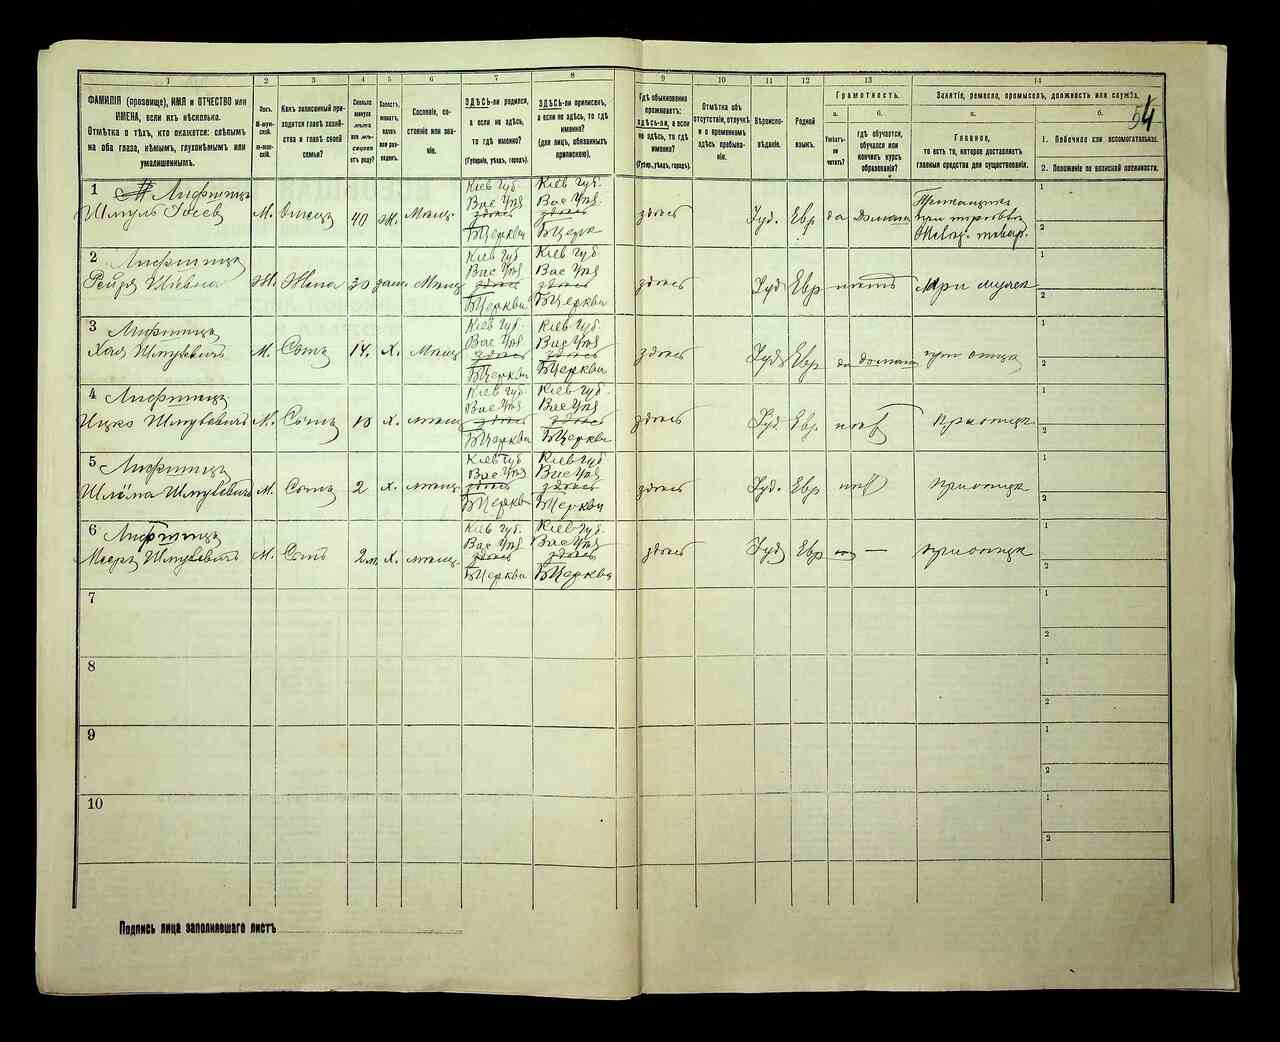 1 2 3 4 5 6 7 8 9 10 11 12 13 14
ФАМИЛІЯ (прозвище), ИМЯ и ОТЧЕСТВО или
ИМЕНА, если ихъ нѣсколько.
Отмѣтка о тѣхъ, кто окажется: слѣпымъ
на оба глаза, нѣмымъ, глухонѣмымъ или
умалишеннымъ.
Полъ.
М-мужской.
Ж-женскій.
Какъ записанный приходится главѣ хозяйства
и главѣ своей
семьи?
Сколько
минуло
лѣтъ
или мѣсяцевъ
отъ роду?
Холостъ,
женатъ,
вдовъ
или разведенъ.
Сословіе, состояніе или званіе.
ЗДѢСЬ-ли родился,
а если не здѣсь,
то гдѣ именно?
(Губернія, уѣздъ, городъ).
ЗДѢСЬ-ли приписанъ,
а если не здѣсь, то гдѣ
именно?
(для лицъ, обязанныхъ
припискою).
Гдѣ обыкновенно
проживаетъ:
здѣсь-ли, а если
не здѣсь, то гдѣ
именно?
(Губер., уѣздъ, городъ).
Отмѣтка объ
отсутствіи, отлучкѣ
и о временномъ
здѣсь пребываніи.
Вѣроисповѣданіе.
Родной
языкъ.
Грамотность.
а.
Умѣетъ-ли
читать?
б.
гдѣ обучается,
обучался или
кончилъ курсъ
образованія?
Занятіе, ремесло, промыселъ, должность или служба.
54
а.
Главное,
то есть то, которое доставляетъ
главныя средства для существованія.
б.
1. Побочное или вспомогательное.
2. Положеніе по воинской повинности.
1 Лифшицъ
Шмуль М. 40 Ж. Мѣщ.
Кіев Губ. Вас Уѣз здѣсь БЦеркви
Кіев Губ. Вас Уѣз здѣсь БЦеркв
здѣсь Іуд. Евр да Дома
при торговлѣ
2 Лифшицъ
Ж. Жена 30 зам. Мѣщ
Кіев Губ Вас Уѣз здѣсь БЦеркви
Кіев Губ Вас Уѣз здѣсь БЦеркви
здѣсь Іуд Евр нѣтъ При мужѣ
3 Лифшицъ
Шмулевичъ М. Сынъ 14. Х. Мѣщ
Кіев Губ. Вас Уѣз здѣсь БЦеркви
Кіев Губ. Вас Уѣз здѣсь БЦеркви
здѣсь Іуд Евр да дома при отцѣ
4 Лифшицъ
Ицко Шмулевичъ М. Сынъ 10 Х. мѣщ
Кіев Губ. Вас Уѣз здѣсь БЦеркви
Кіев Губ. Вас Уѣз здѣсь БЦеркви
здѣсь Іуд. Евр. нѣт при отцѣ
5 Лифшицъ
Шлёма Шмулевичъ М. Сынъ 2 Х. мѣщ
Кіев Губ Вас Уѣз здѣсь БЦеркви
Кіев Губ Вас Уѣз здѣсь БЦеркви
здѣсь Іуд. Евр нѣт при отцѣ
6 Лифшицъ
Мееръ Шмулевичъ М. Сынъ 2м. Х. мѣщ
Кіев Губ. Вас Уѣз здѣсь БЦеркви
Кіев Губ. Вас Уѣз здѣсь БЦеркви
здѣсь Іуд Евр — при отцѣ
7
8
9
10
Подпись лица заполнявшаго листъ